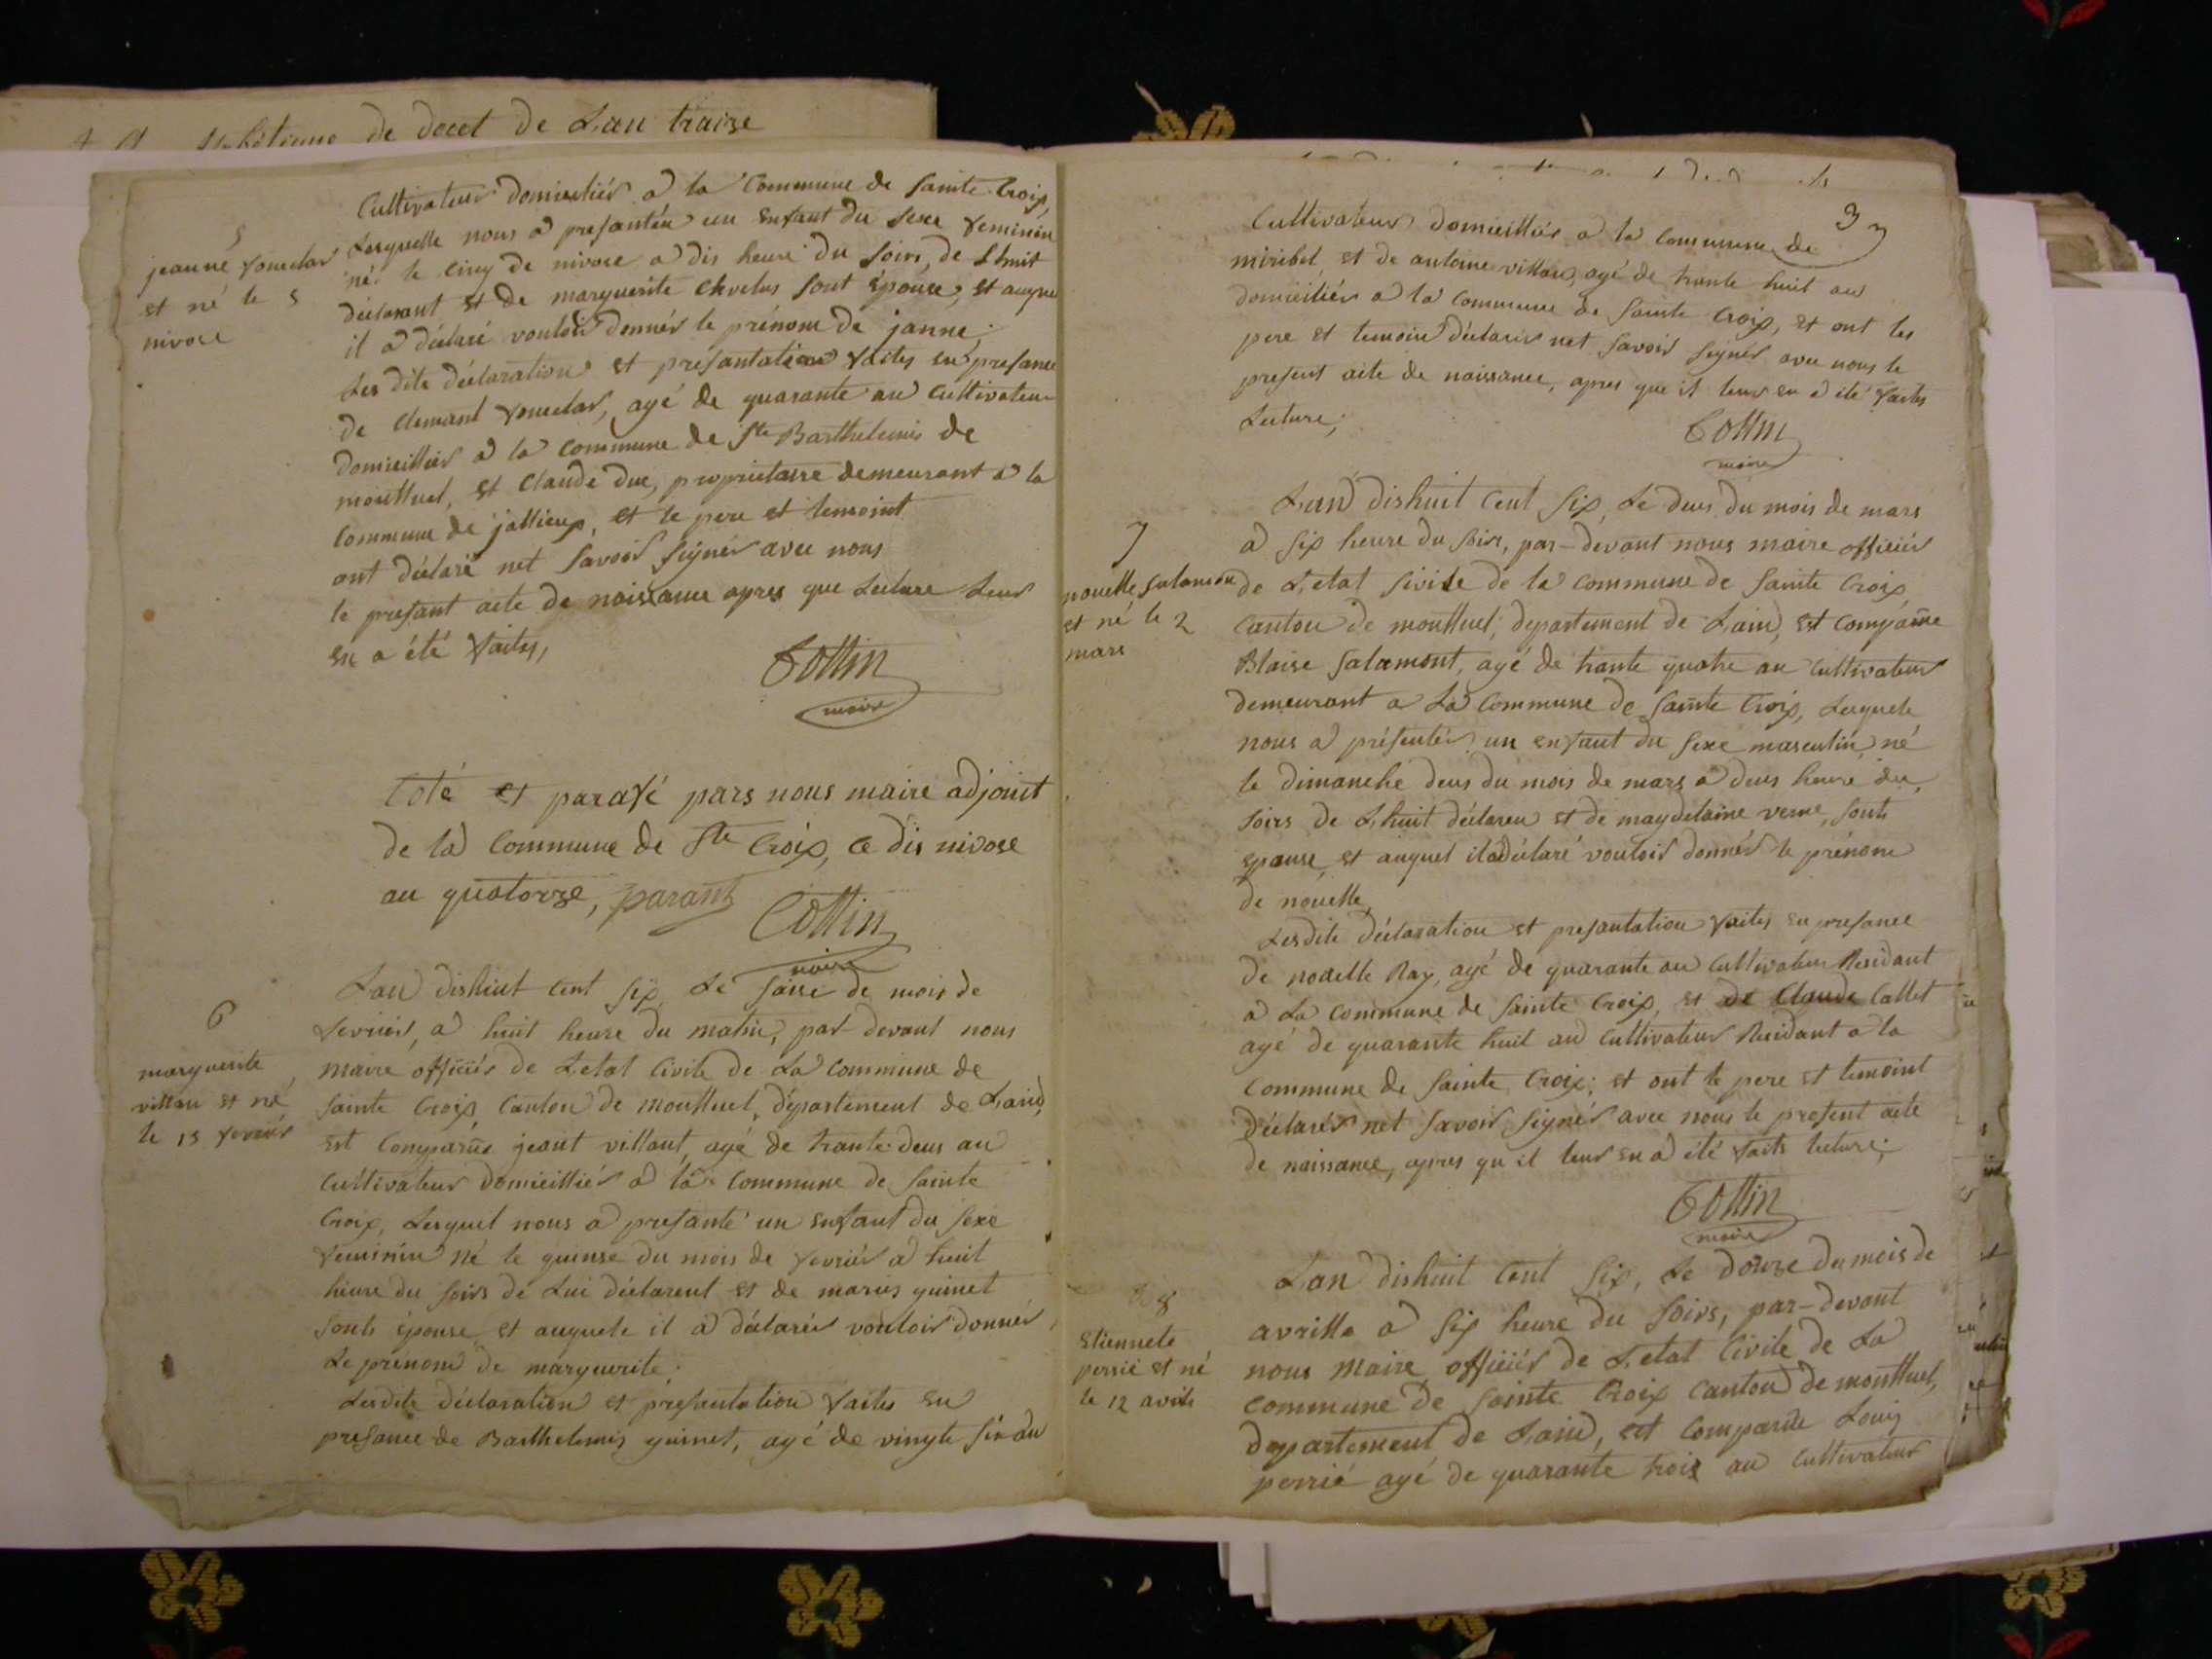 de deset de Lan traize
Cultivateur domicilies a la Commune de sainte Croix,
Lesquelle nous a presantéu un enfant du sexe feminin
né le cinq de nivose a dis heure du soirs, de Lhuit
déclarant et de marguerite Chvelus sont épouse, et auque
il a déclaré vouloir donnér le prénom de janne;
Les dite déclaration et presantation faites en presance
de Clemant fouectar, agé de quarante an Cultivateur
domicilliér a la Commune de Ste Barthelemis de
montluel, et Claude Duc, proprietaire demeurant a la
Commune de jallieux, et le pere et temoint
ont déclaré net savoir signér avec nous
le presant acte de naissance apres que Lecture Leur
en a été faites,
Cottin
maire
5
jeanne fouectar
et né le 5
nivose
Coté et parafé pars nous maire adjoint
de la Commune de Ste Croix, ce dis nivose
an quatorze, parant
Cottin
maire
6
marguerite
villan et né
le 15 fevrier
Lan dishuit cent six, Le saise de mois de
fevriér, a huit heure du matin, par devant nous
maire officiér de Letat Civile de La Commune de
sainte Croix, Canton de montluel, département de Lain,
est Comparüe jeant villant, agé de trante deus an
Cultivateur domicilliér a la Commune de sainte
Croix, Lesquel nous a presanté un enfant du sexe
feminin né le quinse du mois de fevriér a huit
heure du soirs de Lui déclarent et de mariis guinet
sonts épouse, et auquele il a déclarér vouloir donnér
Le prénom de marguerite;
Lesdite déclaration et presantation faites en
presance de Barthelemis guinet, agé de vingte six an
3
Cultivateur domicilliér a la Commune de
miribel, et de antoine villan, agé de trante huit an
domiciliér a la Commune de sainte Croix, et ont les
pere et temoin déclarér net savoir signér avec nous le
present acte de naissance, apres que il leur en a été faites
Lecture;
Cottin
maire
7
nouelle Salamon
et né le 2
mars
Lan dishuit Cent six, Le deus du mois de mars
a six heure du soirs, par-devant nous maire officiér
de Letat sivile de la Commune de sainte Croix
Canton de montluel, departement de Lain, est Comparüe
Blaise Salamont, agé de trante quatre an Cultivateur
demeurant a La Commune de sainte Croix, Lequele
nous a présentér un enfant du sexe masculin, né
le dimanche deus du mois de mars a deus heure du
soirs de Lhuit déclareu et de maydelaine verne, sonts
epouse, et auquel il a déclaré vouloir donnér le prénom
de nouelle,
Lesdite déclaration et presantation faites en presance
de nouelle Ray, agé de quarante an Cultivateur Residant
a La Commune de sainte Croix, et de Claude Callet
agé de quarante huit an Cultivateur Residant a la
Commune de sainte Croix; et ont le pere et temoint
déclarér net savoir signér avec nous le present acte
de naissance, apres qu il leur en a été faits lecture;
Cottin
maire
8
Etiennete
perrié et né
le 12 avrile
Lan dishuit Cent six, Le douze du mois de
avrille a six heure du soirs, par-devant
nous maire officiér de Letat Civile de La
Commune de sainte Croix Canton de montluel,
departement de Lain, est Comparüe Louis
perrié agé de quarante trois an Cultivateur